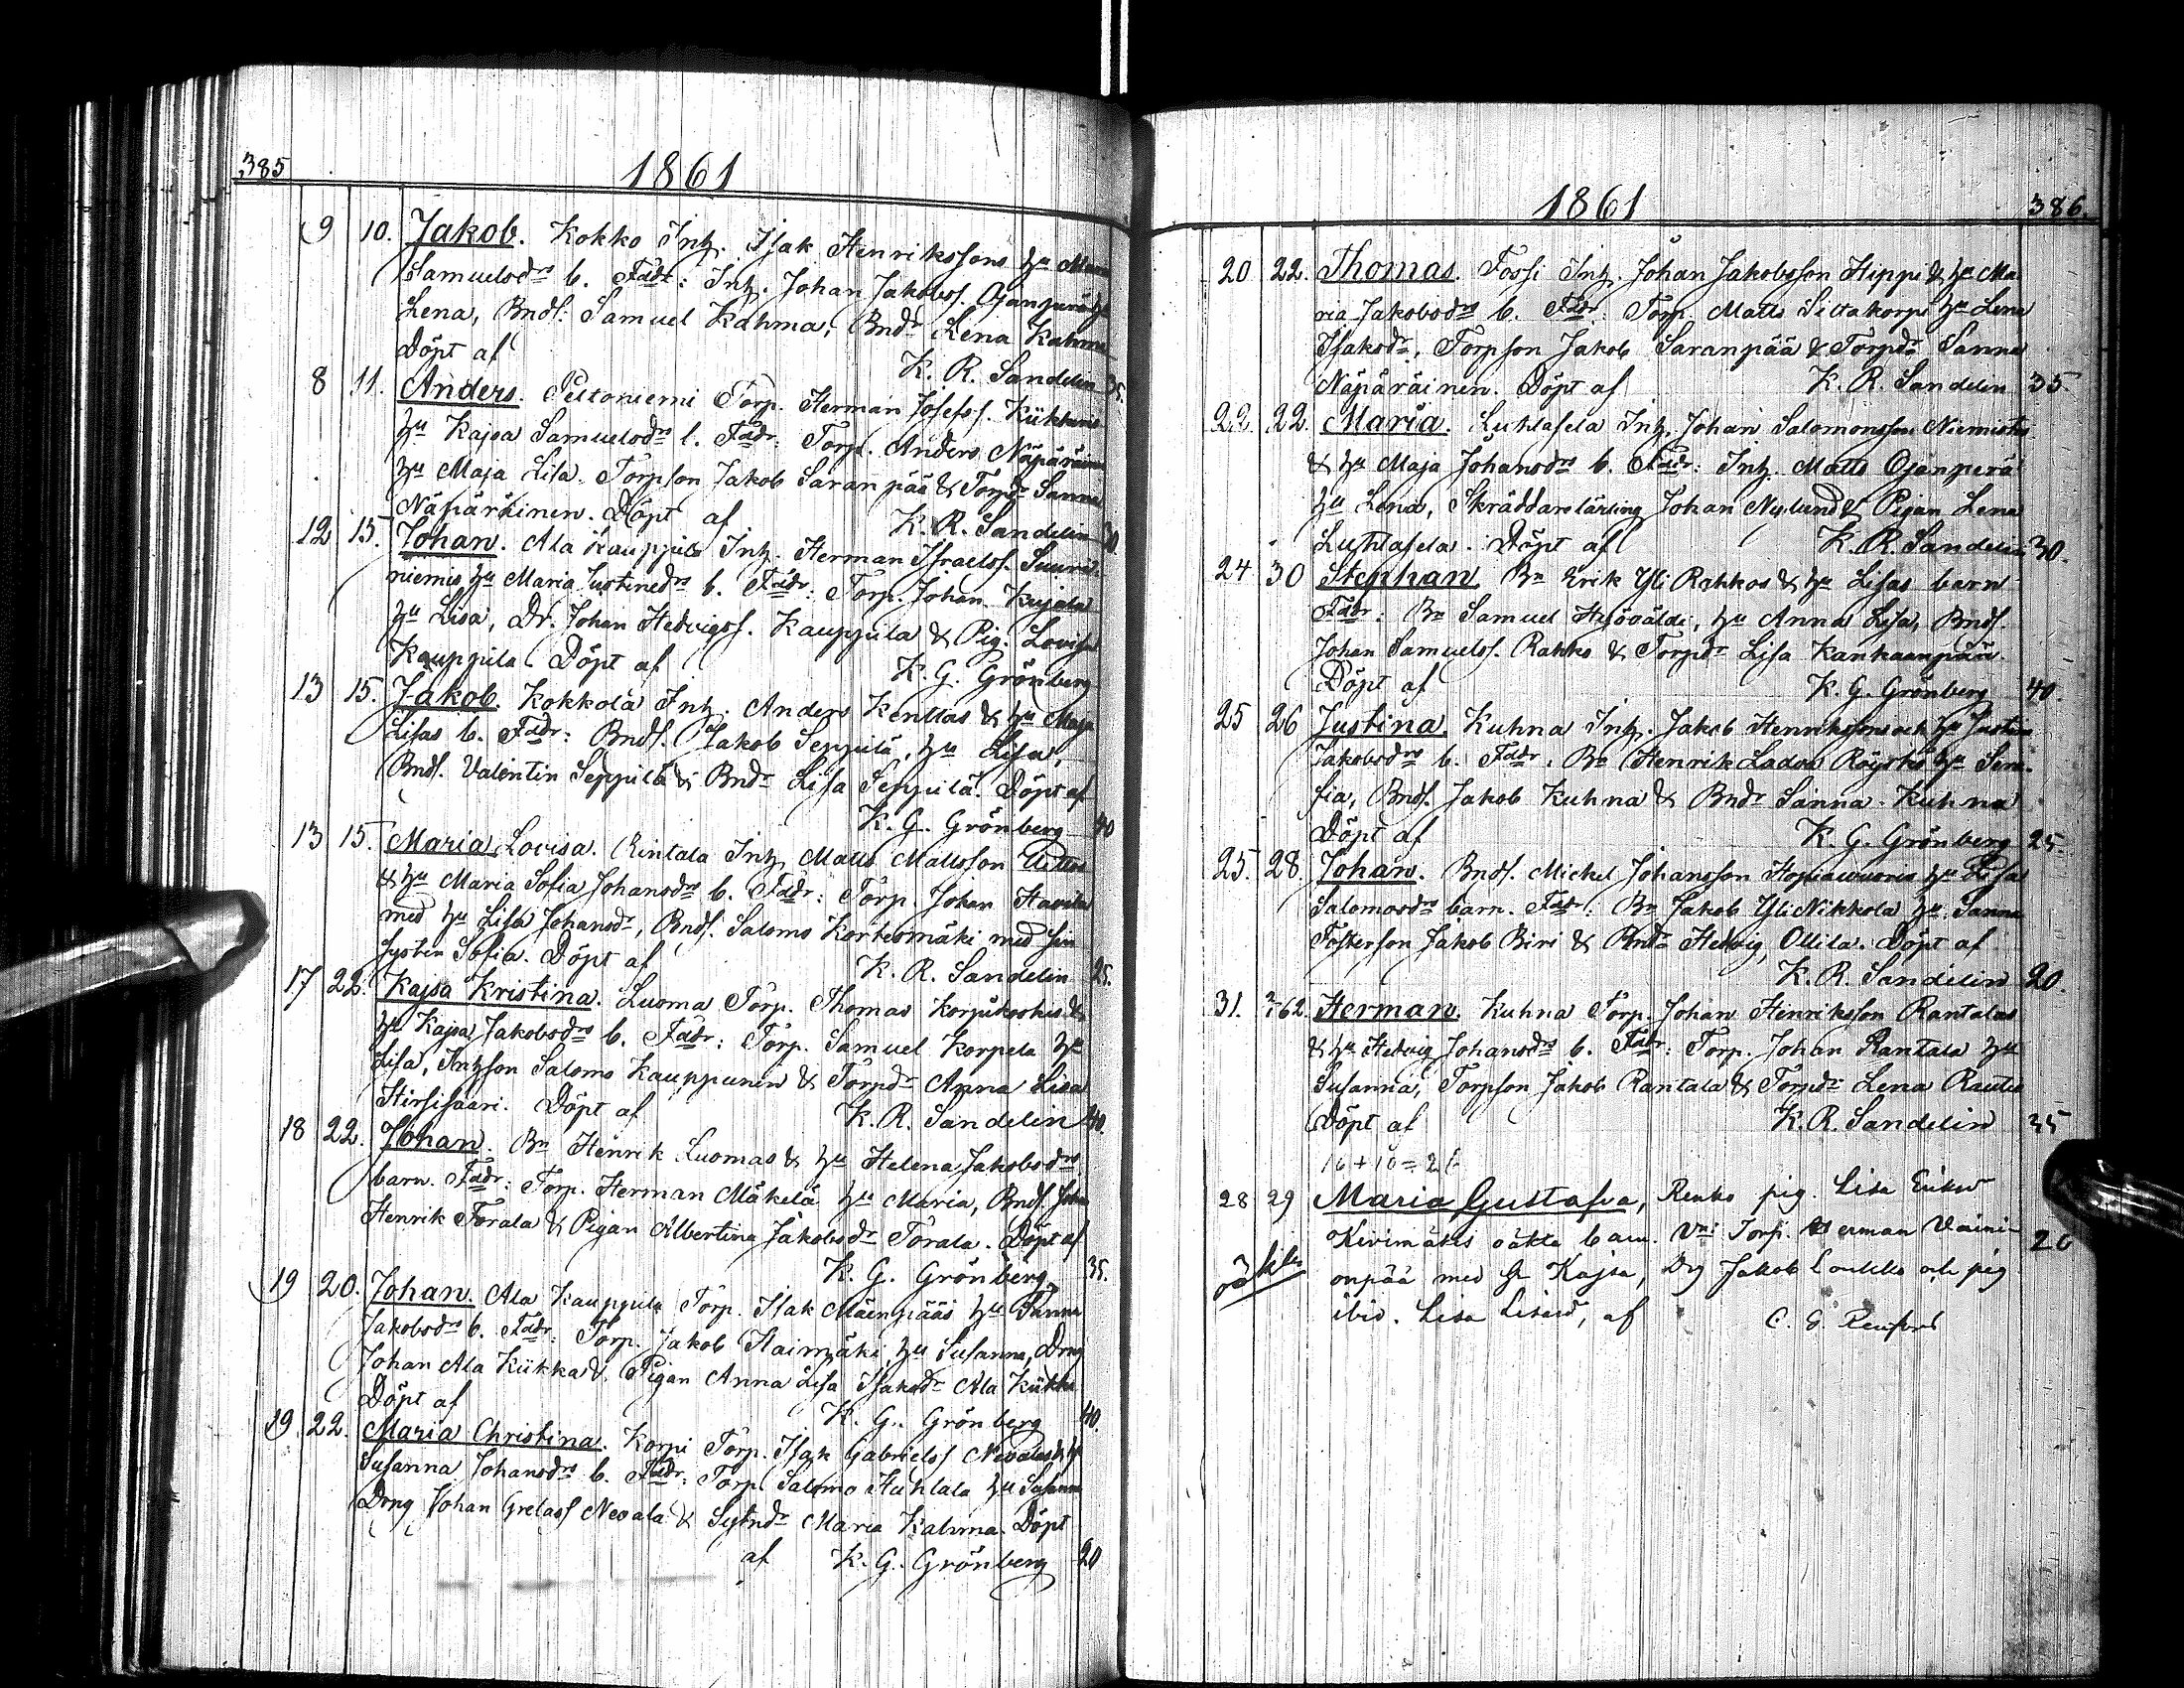 385
1861
9 10. Jakob. Kokko Inh. Isak Henrikssons hu Maria
Samuelsdrs b. Faddr: Inh. Johan Jakobss. Ojanperä hu
Lena, Bnds. Samuel Kahma, Bndr Lena Kahma
Döpt af K. R. Sandelin 35.
8 11. Anders. Peltoniemi Torp. Herman Josefss.
hu Kajsa Samuelsdrs b. Faddr: Torp. Anders Näpäräinen
hu Maja Lisa. Torpson Jakob Saranpää & Torpdr Sanna
Näpäräinen. Döpt af K. R. Sandelin 30.
12 15. Johan. Ala Kauppila Inh. Herman Israelss. Suuri-
niemis hu Maria Justinedrs b. Faddr: Torp. Johan Kujala
hu Lisa, Dr. Johan Hedvigss. Kauppila & Pig. Lovisa
Kauppila. Döpt af K. G. Grönberg
13 15. Jakob. Kokkola Inh. Anders Kenttas & hu Maja
Lisas b. Faddr: Bnds. Jakob Seppilä, hu Lisa,
Bnds. Valentin Seppilä & Bndr Lisa Seppilä. Döpt af
K. G. Grönberg 40
13 15. Maria Lovisa. Rintala Inh. Matts Mattsson
& hu Maria Sofia Johansdrs b. Faddr: Torp. Johan Harila
med hu Lisa Johansdr, Bnds. Salomo Kortesmäki med sin
syster Sofia. Döpt af K. R. Sandelin 25.
17 22. Kajsa Kristina. Luoma Torp. Thomas Korpikoskis &
hu Kajsa Jakobsdrs b. Faddr: Torp. Samuel Korpela hu
Lisa, Inhson Salomo Kauppinen & Torpdr Anna Lisa
Hirsisaari. Döpt af K. R. Sandelin 40.
18 22. Johan. Bn Henrik Luomas & hu Helena Jakobsdrs
barn. Faddr: Torp. Herman Mäkelä hu Maria, Bnds. Johan
Henrik Torala & Pigan Albertina Jakobsdr Torala. Döpt af
K. G. Grönberg 35.
19 20. Johan. Ala Kauppila Torp. Isak Mäenpääs hu Sanna
Jakobsdrs b. Faddr: Torp. Jakob Haimäki, hu Susanna, Dräng
Johan Ala Kiikka & Pigan Anna Lisa Isaksdr Ala Kiikka
Döpt af K. G. Grönberg 40.
19. 22. Maria Christina. Korpi Torp. Isak Gabrielss Nevalas & hu
Susanna Johansdrs b. Faddr: Torp. Salomo Huhtala hu Susanna
Dräng Johan Gretass Nevala & Sytndr Maria Kahma. Döpt
af K. G. Grönberg 20
1861
386.
20 22. Thomas. Fossi Inh. Johan Jakobsson Hippi & hu Ma
ria Jakobsdrs b. Faddr: Torp. Matts Sillakorpi hu Lena
Isaksdr, Torpson Jakob Saranpää & Torpdr Sanna
Näpäräinen. Döpt af K. R. Sandelin 35.
22 22. Maria. Luhtasela Inh. Johan Salomonsson Niemistö
& hu Maja Johansdrs b. Faddr: Inh. Matts Ojanperä
hu Lena, Skräddarelärling Johan Nylund & Pigan Lena
Luhtasela. Döpt af K. R. Sandelin 30.
24 30 Stephan. Bn Erik Yli Rahkos & hu Lisas barn
Faddr: Bn Samuel Hyöväldi, hu Anna Lisa, Bnds.
Johan Samuelss. Rahko & Torpdr Lisa Kankaanpää.
Döpt af K. G. Grönberg 40.
25 26 Justina. Kuhna Inh. Jakob Henrikssons och hu Justina
Jakobsdrs b. Faddr. Bn Henrik Ladva Röyskö hu Sera-
fia, Bnds. Jakob Kuhna & Bndr Sanna Kuhna
Döpt af K. G. Grönberg 25.
25. 28. Johan. Bnds. Mickel Johansson Hopiavuoris hu Lisa
Salomosdrs barn. Faddr: Bn Jakob Yli Nikkola hu Sanna
Fosterson Jakob Biri & Bndr Hedvig Ollila. Döpt af
K. R. Sandelin 20.
31. 2/1 62. Herman. Kuhna Torp. Johan Henriksson Rantalas
& hu Hedvig Johansdrs b. Faddr: Torp. Johan Rantala hu
Susanna, Torpson Jakob Rantala & Torpdr Lena Rautio
Döpt af K. R. Sandelin 35
16 + 10 = 26
28 29 Maria Gustafva, Renko pig. Lisa Eriksd
Kivimäkis oäkta barn. Vn: Torp. Herman Vaini-
onpää med h Kajsa, Drg Jakob och pig
ibid. Lisa Lisasd, af C. G. Renfors
20
oäkta